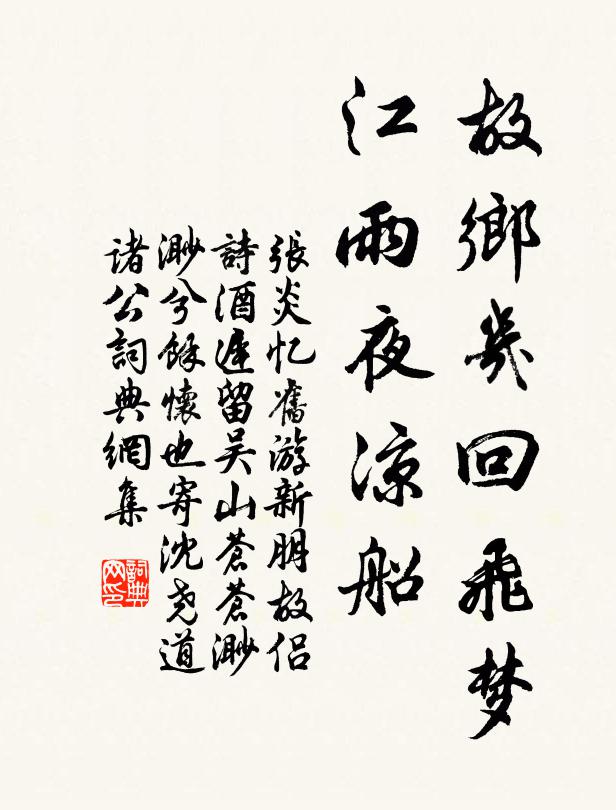 故鄉幾回飛梦
江雨夜涼船
張炎忆舊游新朋故侣
詩酒遲留吴山蒼蒼渺
渺兮餘懷也寄沈尧道
诸公詞典網集
詞典网印